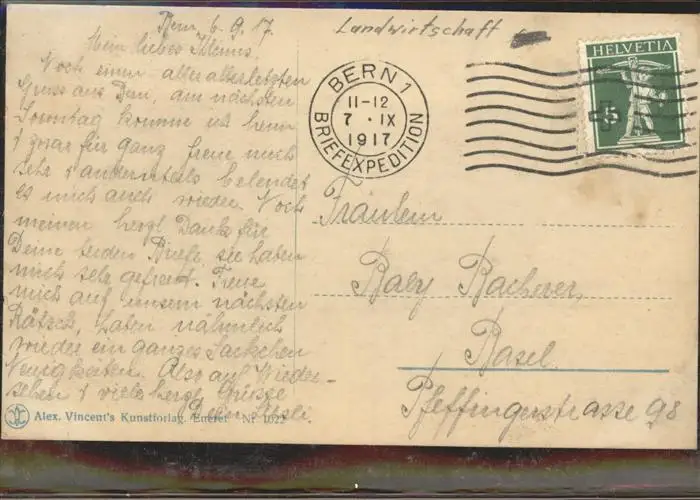 Bern, 6.9.17.
Mein liebes
Noch einen allerallerletzten
Gruss aus Bern, am nächsten
Sonntag komme ich heim
& zwar für ganz freue mich
sehr & andernteils
es mich auch wieder. Noch
meinen herzl Dank für
Deine beiden Briefe, sie haben
mich sehr gefreut. Freue
mich auf unsern nächsten
Rätsch, haben nähmlich
wieder ein ganzes Säckchen
Neuigkeiten. Also auf Wieder-
sehen & viele herzl Grüsse
Alex. Vincent's Kunstverlag. Nr. 1022
Landwirtschaft
BERN 1
11-12
7 · IX
1917
BRIEFEXPEDITION
HELVETIA
5
Fräulein
Baly Bacherer,
Basel.
Pfeffingerstrasse 98